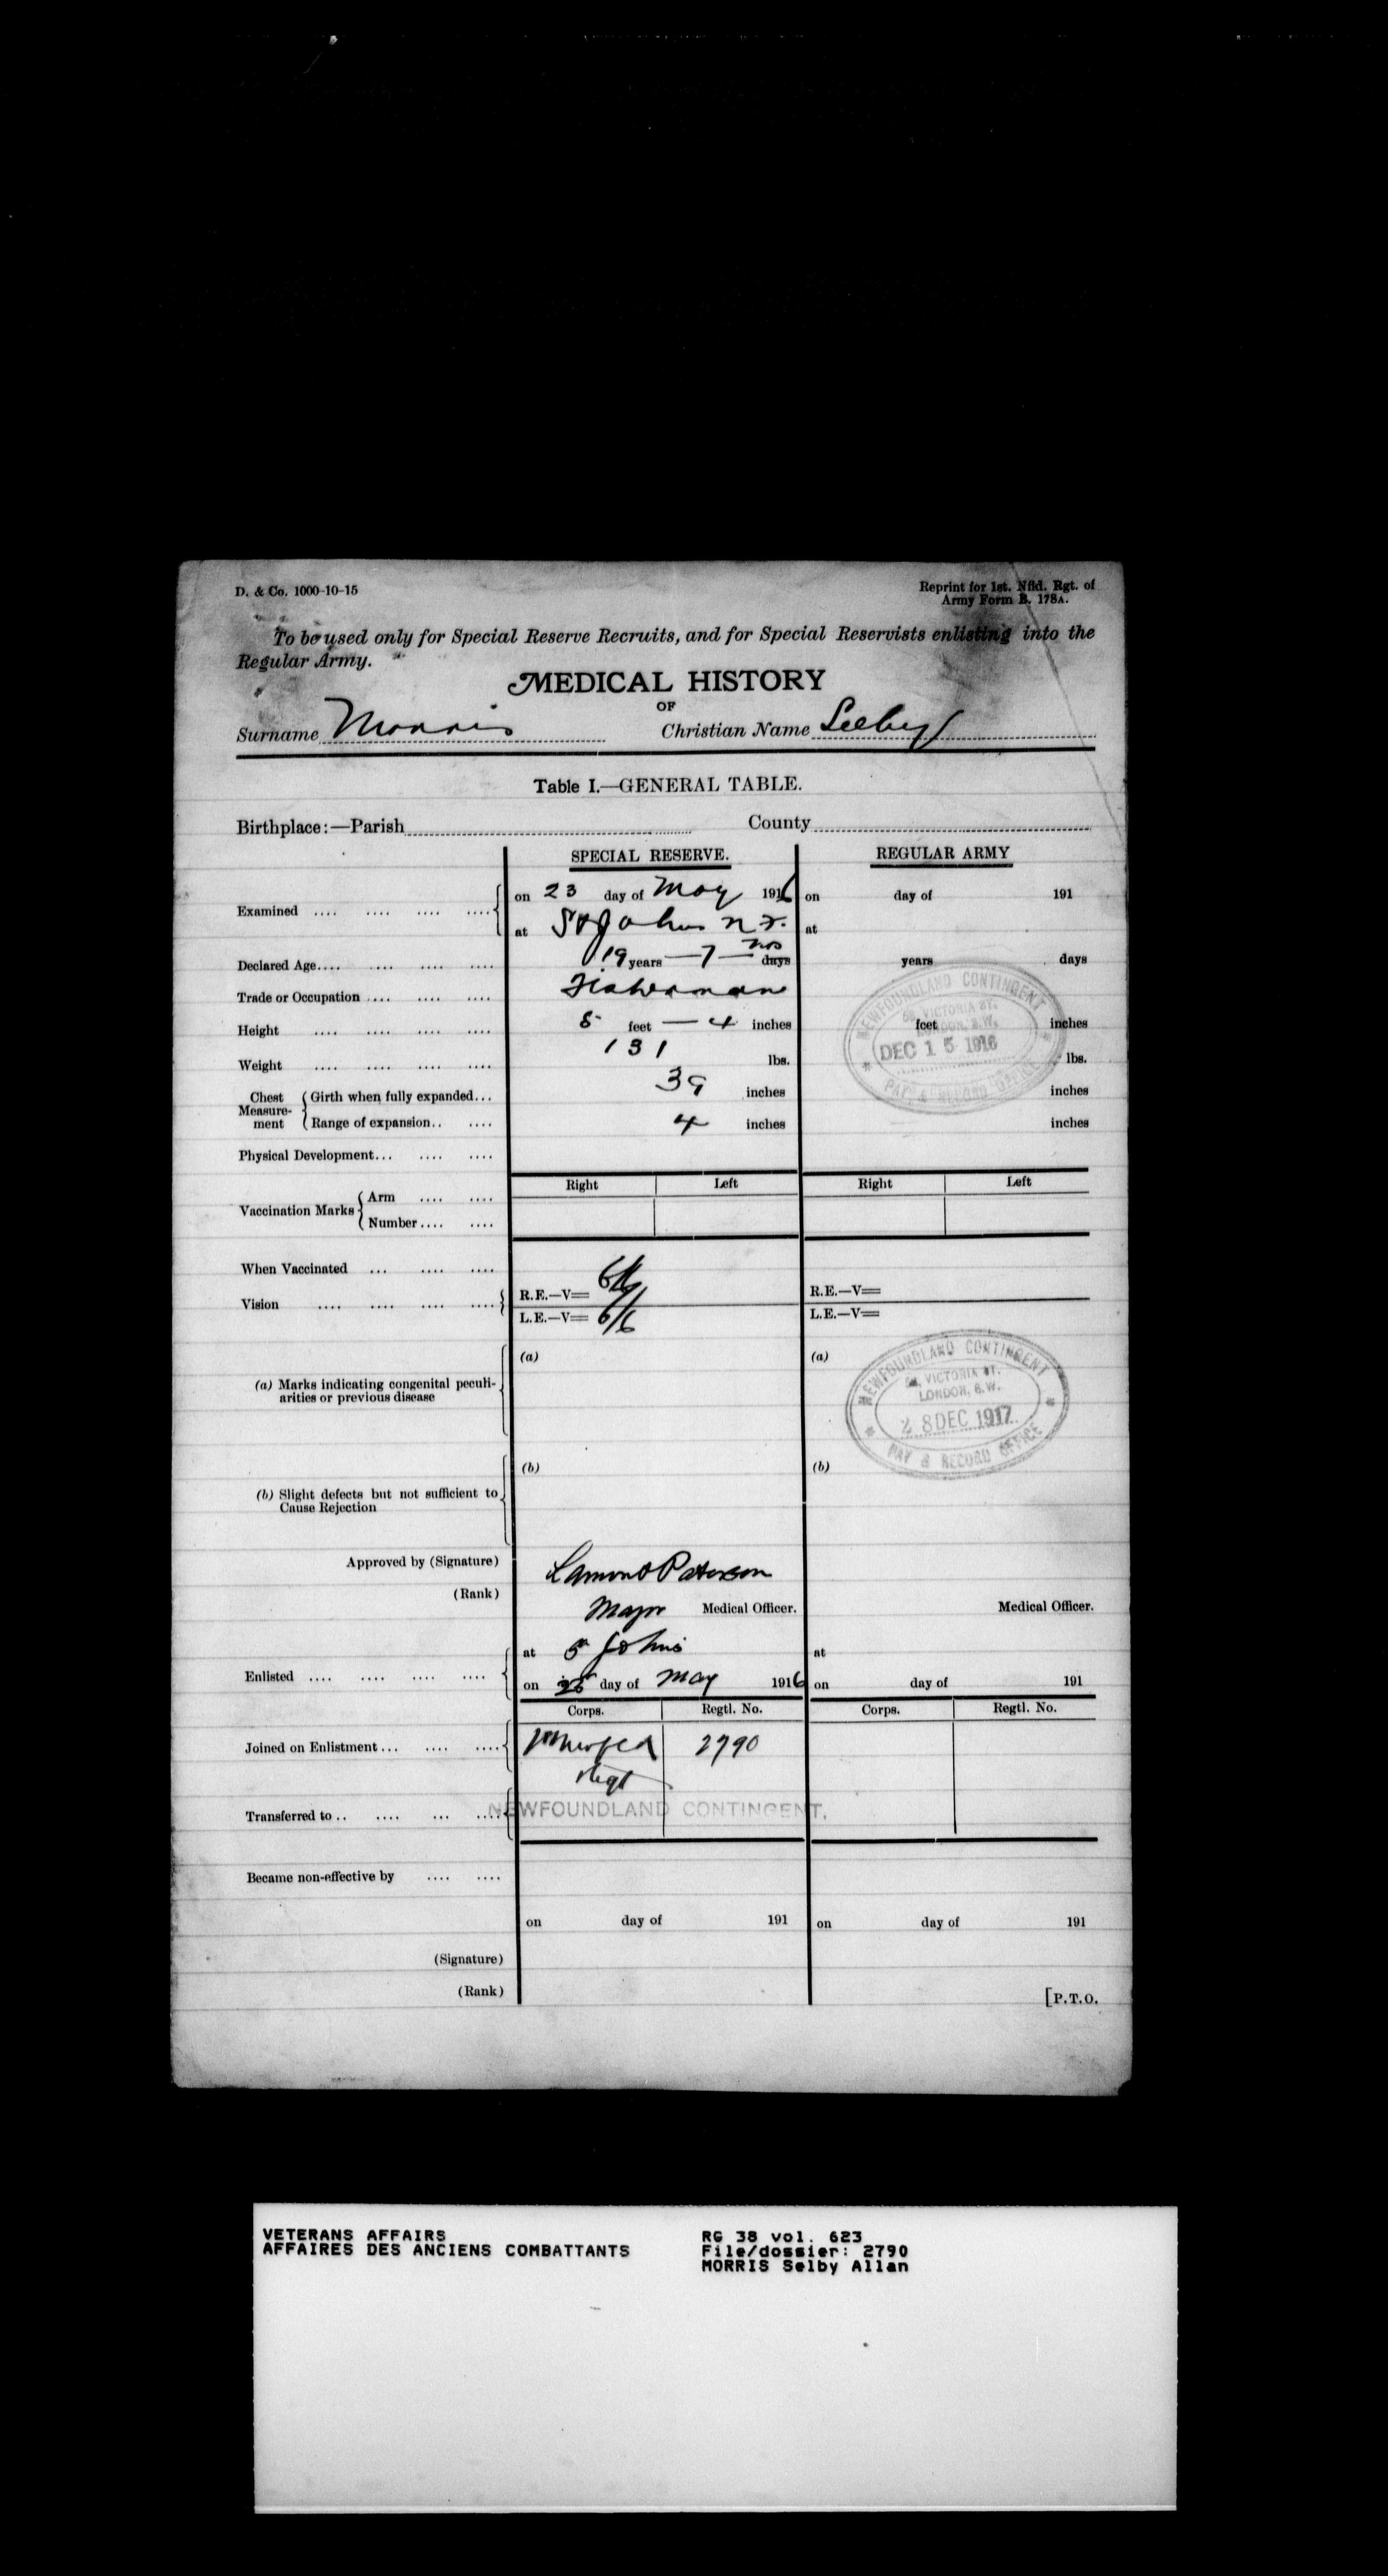 D. & Co. 1000-10-15
Reprint for 1st. Nfld. Rgt. of
Army Form B. 178A.
To be used only for Special Reserve Recruits, and for Special Reservists enlisting into the
Regular Army.
MEDICAL HISTORY
OF
Surname Morris Christian Name Selby
Table I.—GENERAL TABLE.
Birthplace:—Parish County
SPECIAL RESERVE. REGULAR ARMY
Examined .... .... .... .... on 23 day of May 1916 on day of 191
at St Johns N.F. at
Declared Age.... .... .... .... 19 years — 7 — mos days years days
Trade or Occupation .... .... .... Fisherman
Height .... .... .... .... 5 feet — 4 inches feet inches
Weight .... .... .... .... 131 lbs. lbs.
Chest Measurement Girth when fully expanded... 39 inches inches
Range of expansion.. .... 4 inches inches
NEWFOUNDLAND CONTINGENT
58 VICTORIA ST.
LONDON, S.W.
DEC 15 1916
PAY & RECORD OFFICE
Physical Development... .... ....
Right Left Right Left
Vaccination Marks Arm .... ....
Number .... ....
When Vaccinated ... .... ....
Vision .... .... .... .... R.E.—V= 6/6 R.E.—V=
L.E.—V= 6/6 L.E.—V=
(a) (a)
(a) Marks indicating congenital peculi-
arities or previous disease
NEWFOUNDLAND CONTINGENT
58, VICTORIA ST.
LONDON, S.W.
28 DEC 1917
PAY & RECORD OFFICE
(b) (b)
(b) Slight defects but not sufficient to
Cause Rejection
Approved by (Signature) Lamont Paterson
(Rank) Major Medical Officer. Medical Officer.
at St Johns at
Enlisted .... .... .... .... on 25 day of May 1916 on day of 191
Corps. Regtl. No. Corps. Regtl. No.
Joined on Enlistment ... .... .... 1st Newfld 2790
Regt
Transferred to .. .... ... .... NEWFOUNDLAND CONTINGENT.
Became non-effective by .... ....
on day of 191 on day of 191
(Signature)
(Rank)
[P.T.O.
VETERANS AFFAIRS RG 38 vol. 623
AFFAIRES DES ANCIENS COMBATTANTS File/dossier: 2790
MORRIS Selby Allan